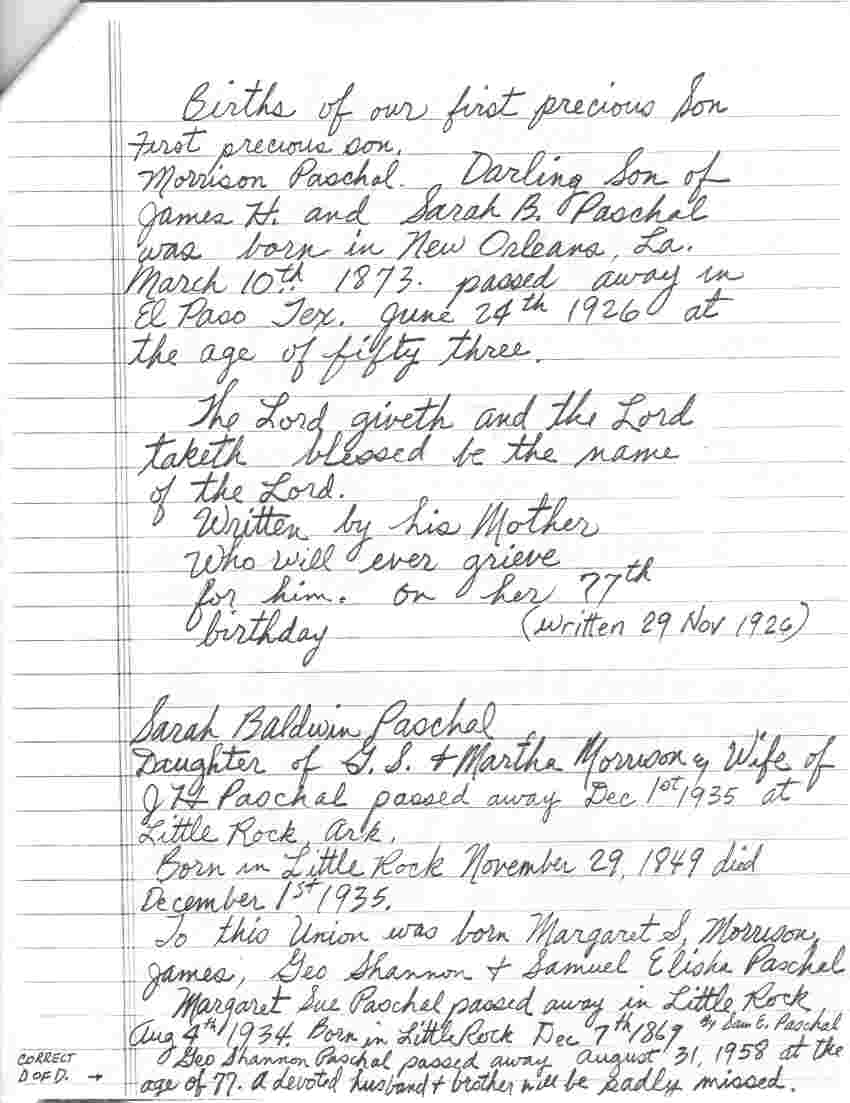 Births of our first precious Son
First precious son.
Morrison Paschal. Darling Son of
James H. and Sarah B. Paschal
was born in New Orleans, La.
March 10th 1873. passed away in
El Paso Tex. June 24th 1926 at
the age of fifty three.
The Lord giveth and the Lord
taketh blessed be the name
of the Lord.
Written by his Mother
Who will ever grieve
for him. on her 77th
birthday (written 29 Nov 1926)
Sarah Baldwin Paschal
Daughter of G. S. & Martha Morrison & Wife of
J H Paschal passed away Dec 1st 1935 at
Little Rock, Ark.
Born in Little Rock November 29, 1849 died
December 1st 1935.
To this Union was born Margaret S, Morrison,
James, Geo Shannon & Samuel Elisha Paschal
Margaret Sue Paschal passed away in Little Rock
Aug 4th 1934. Born in Little Rock Dec 7th 1869 By Sam E. Paschal
Geo Shannon Paschal passed away August 31, 1958 at the
CORRECT
D OF D. →
age of 77. A devoted husband & brother will be sadly missed.